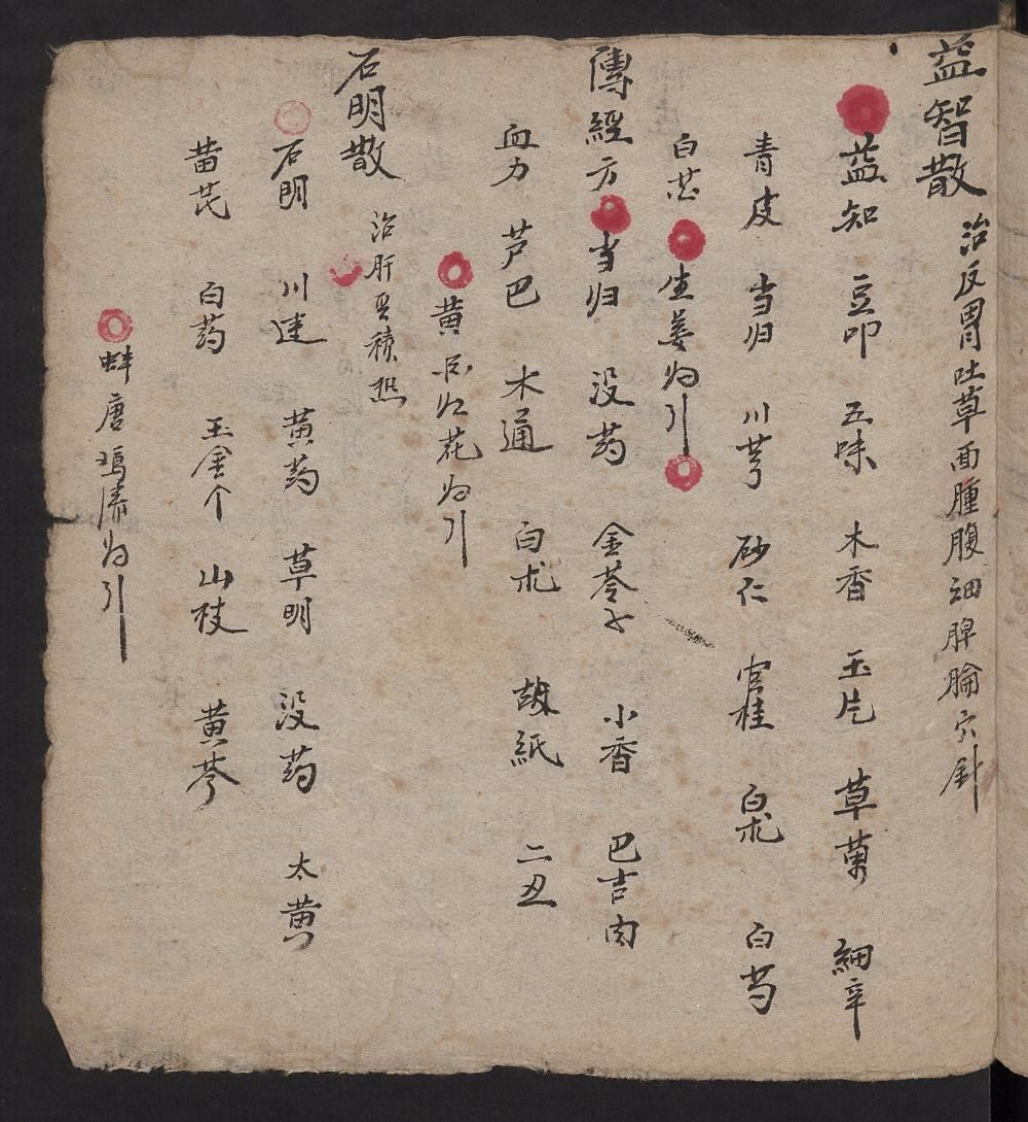 益智散 治反胃吐草面腫腹细脾腧穴針
益知 豆叩 五味 木香 玉片 草菓 細辛
青皮 当归 川芎 砂仁 官桂 白术 白芍
白芷 生姜为引
傳經方 当归 没药 金苓子 小香 巴吉肉
血力 芦巴 木通 白术 胡紙 二丑
黄 花为引
石明散 治肝 積
石明 川連 黄药 草明 没药 太黄
黄芪 白药 玉金个 山枝 黄芩
蚌唐鸡清为引